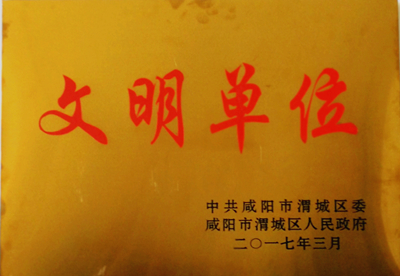 文明单位
中共咸阳市渭城区委
咸阳市渭城区人民政府
二〇一七年三月